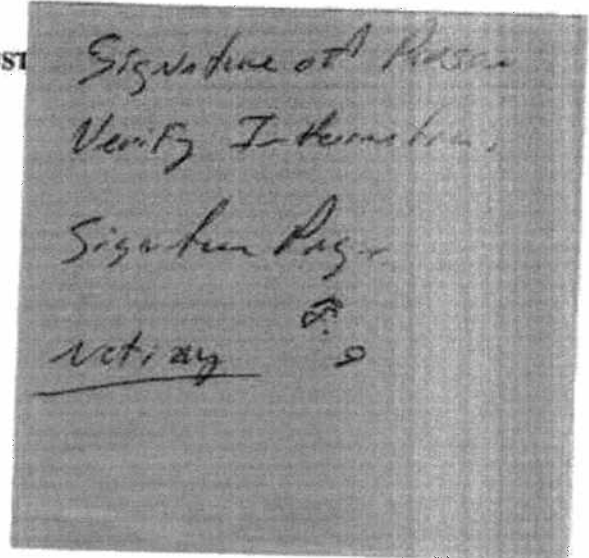 ST
Signature of Person
Verify Information
Signature Page
Notray